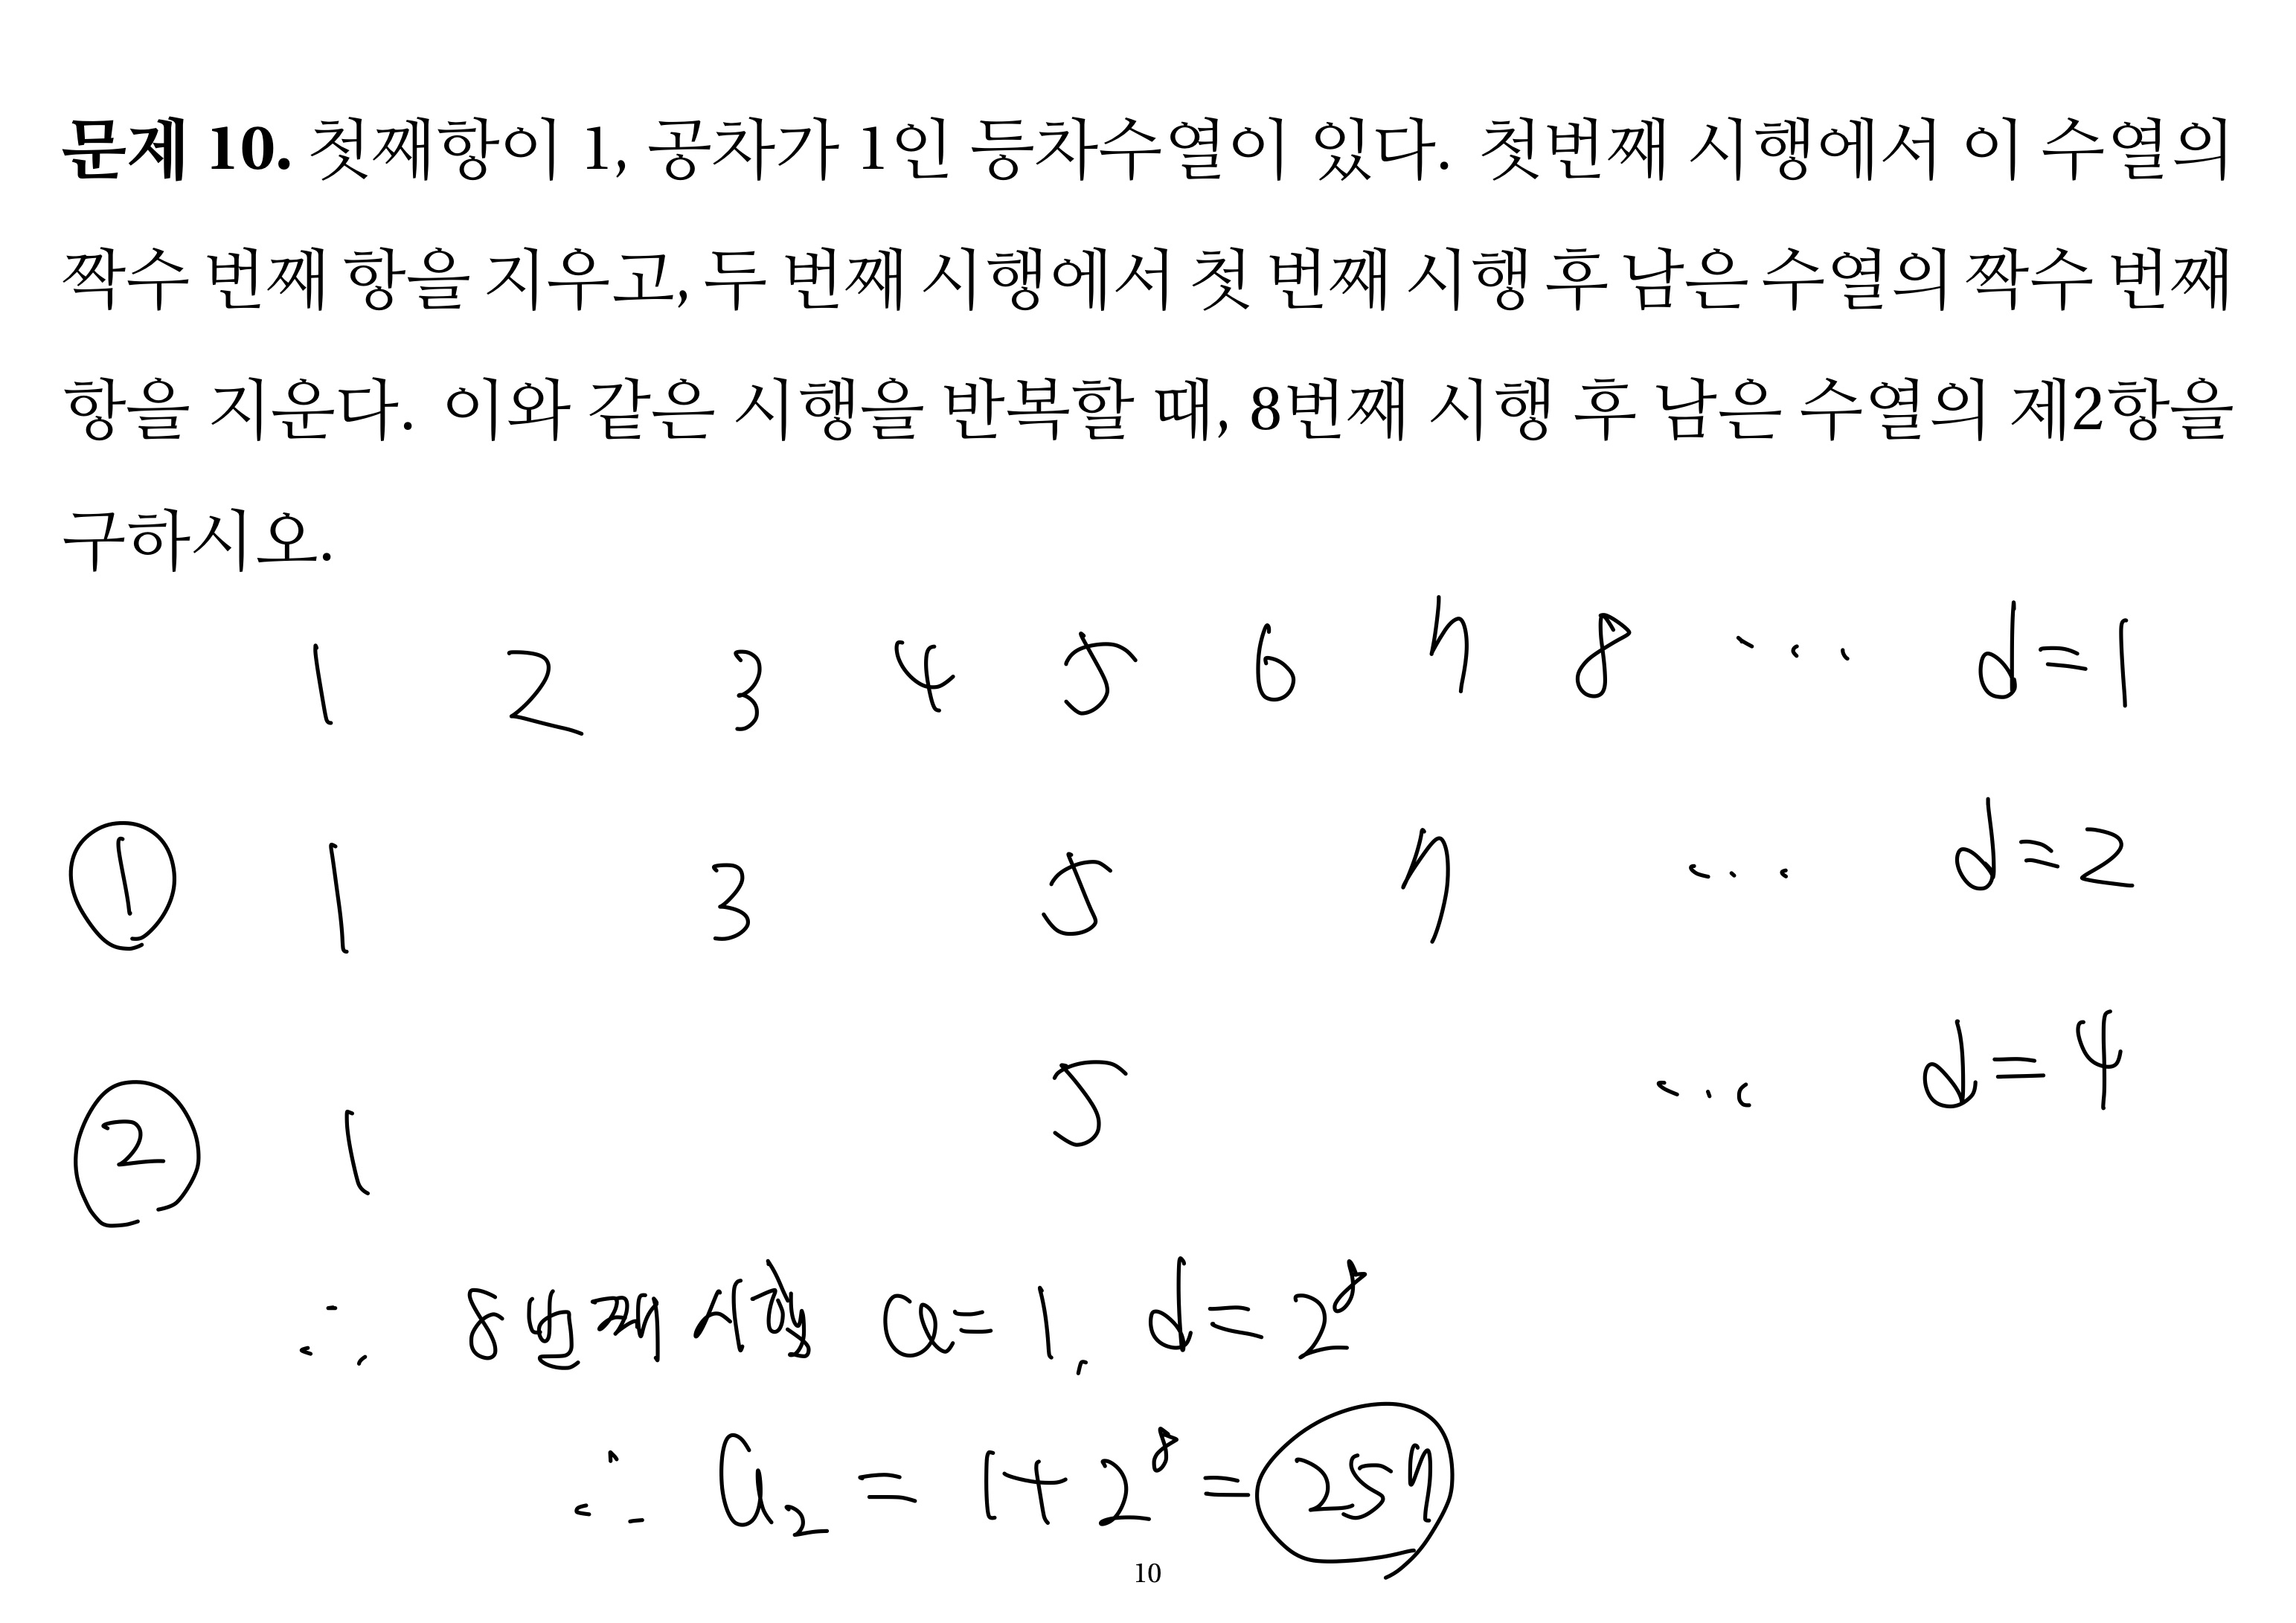 문제 10. 첫째항이 1, 공차가 1인 등차수열이 있다. 첫 번째 시행에서 이 수열의
짝수 번째 항을 지우고, 두 번째 시행에서 첫 번째 시행 후 남은 수열의 짝수 번째
항을 지운다. 이와 같은 시행을 반복할 때, 8번째 시행 후 남은 수열의 제2항을
구하시오.
1 2 3 4 5 6 7 8 ... d=1
① 1 3 5 7 ... d=2
② 1 5 ... d=4
∴ 8번째 시행 a=1, d=2⁸
∴ a₂ = 1+2⁸ = 257
10